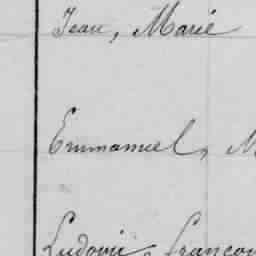 Jean, Marie
Emmanuel, M
Ludovic, Françou